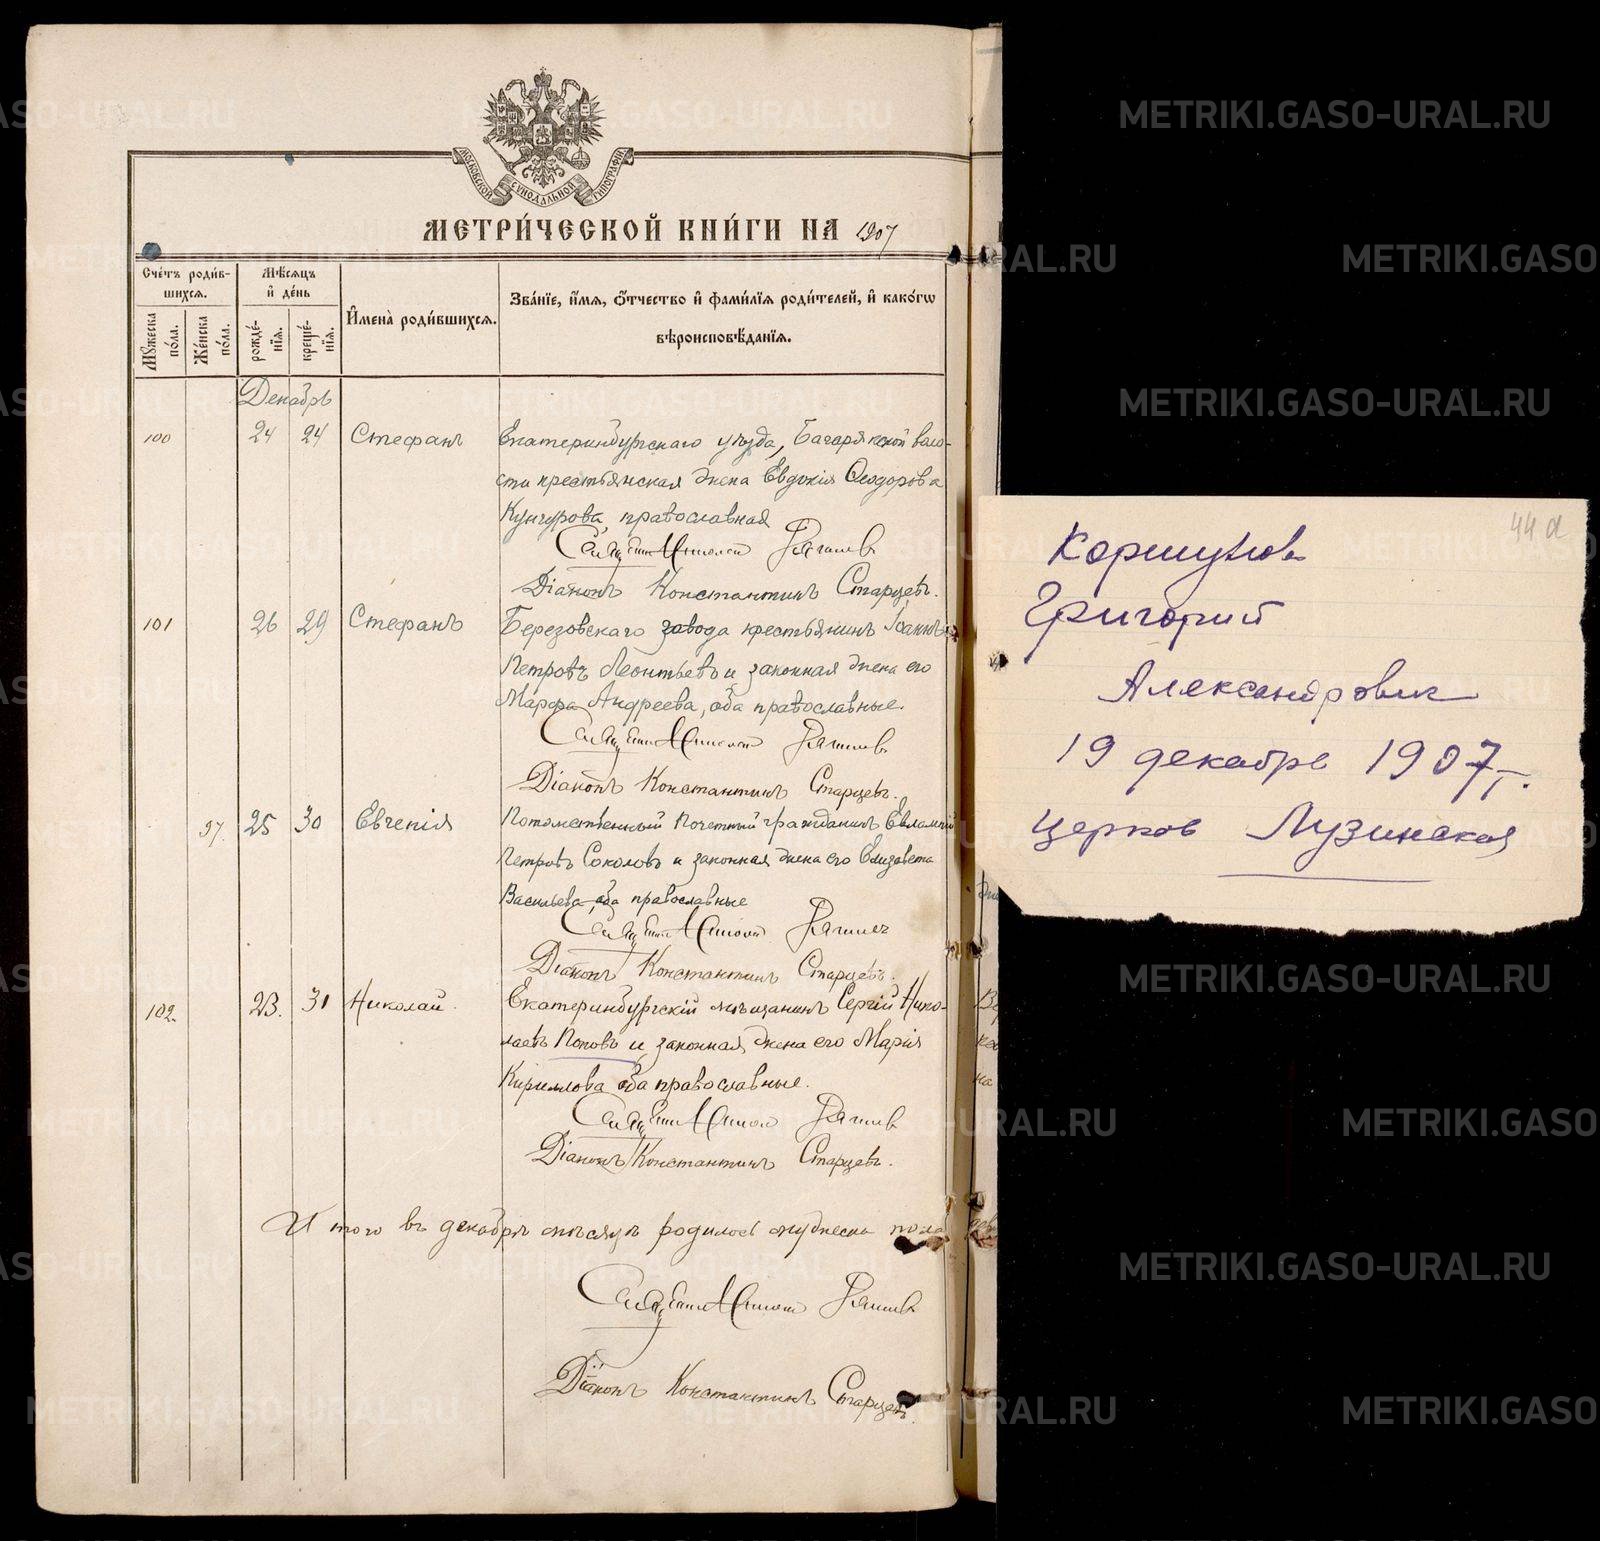 МОСКОВСКОЙ СѴНОДАЛЬНОЙ ТИПОГРАФІИ
МЕТРИ́ЧЕСКОЙ КНИ́ГИ НА 1907
Сче́тъ роди́в-
шихсѧ.
Мѣ́сѧцъ
и҆ де́нь
Мꙋ́жеска
по́ла.
Же́нска
по́ла.
рожде́-
нїѧ.
креще́-
нїѧ.
И҆мена̀ роди́вшихсѧ.
Зва́нїе, и҆́мѧ, ѻ҆́тчество и҆ фами́лїѧ роди́телей, и҆ како́гѡ
вѣроисповѣ́данїѧ.
Декабрь
100 24 24 Стефанъ Екатеринбургскаго уѣзда, Багарякской воло-
сти крестьянская жена Евдокія Ѳеодорова
Кунгурова, православная
Священникъ
Діаконъ Константинъ Старцевъ.
101 26 29 Стефанъ Березовскаго завода крестьянинъ Іоаннъ
Петровъ Леонтьевъ и законная жена его
Марфа Андреева, оба православные.
Священникъ
Діаконъ Константинъ Старцевъ.
97. 25 30 Евгенія Потомственный Почетный гражданинъ Евлампій
Петровъ Соколовъ и законная жена его Елизавета
Васильева, оба православные
Священникъ
Діаконъ Константинъ Старцевъ.
102. 23. 31 Николай. Екатеринбургскій мѣщанинъ Сергій Нико-
лаевъ Поповъ и законная жена его Марія
Кириллова оба православные.
Священникъ
Діаконъ Константинъ Старцевъ.
Итого въ декабрѣ мѣсяцѣ родилось мужеска пола
Священникъ
Діаконъ Константинъ Старцевъ.
44а
Коршунов
Григорий
Александрович
19 декабря 1907,
Церковь Лузинская
METRIKI.GASO-URAL.RU